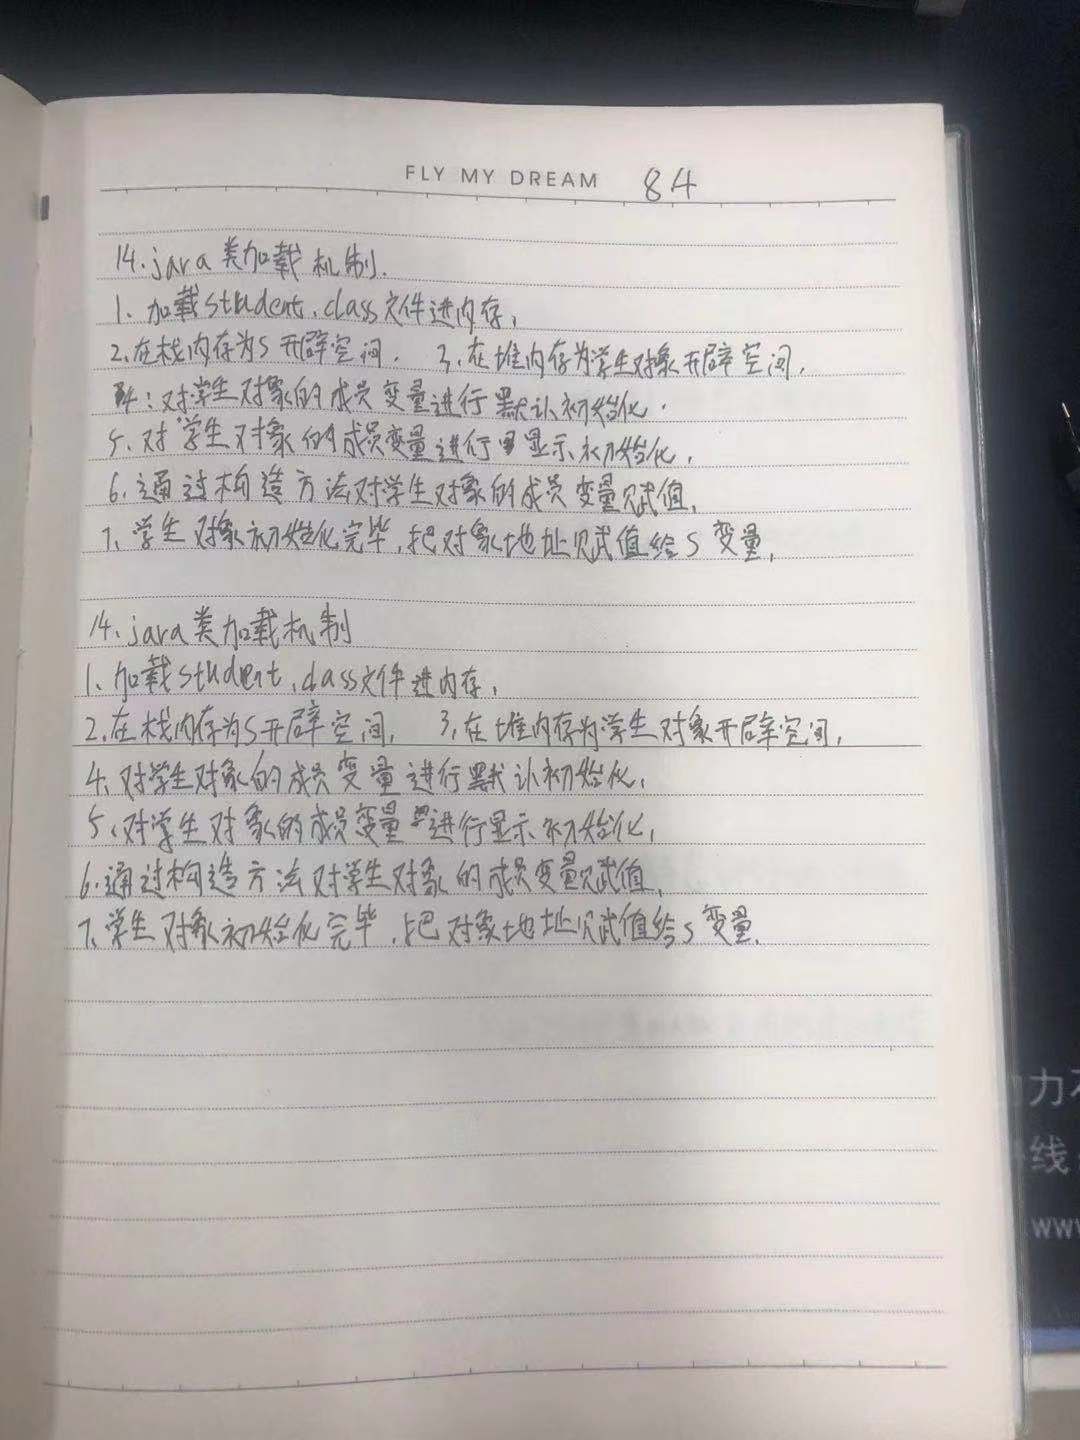 FLY MY DREAM 84
14.java类加载机制.
1、加载student.class文件进内存,
2、在栈内存为S开辟空间. 3、在堆内存为学生对象开辟空间,
4:对学生对象的成员变量进行默认初始化.
5、对学生对象的成员变量进行显示初始化,
6、通过构造方法对学生对象的成员变量赋值,
7、学生对象初始化完毕,把对象地址赋值给S变量,
14、java类加载机制
1、加载student.class文件进内存,
2、在栈内存为S开辟空间, 3、在堆内存为学生对象开辟空间,
4、对学生对象的成员变量进行默认初始化,
5、对学生对象的成员变量进行显示初始化,
6.通过构造方法对学生对象的成员变量赋值,
7、学生对象初始化完毕,把对象地址赋值给S变量.
力
线
www